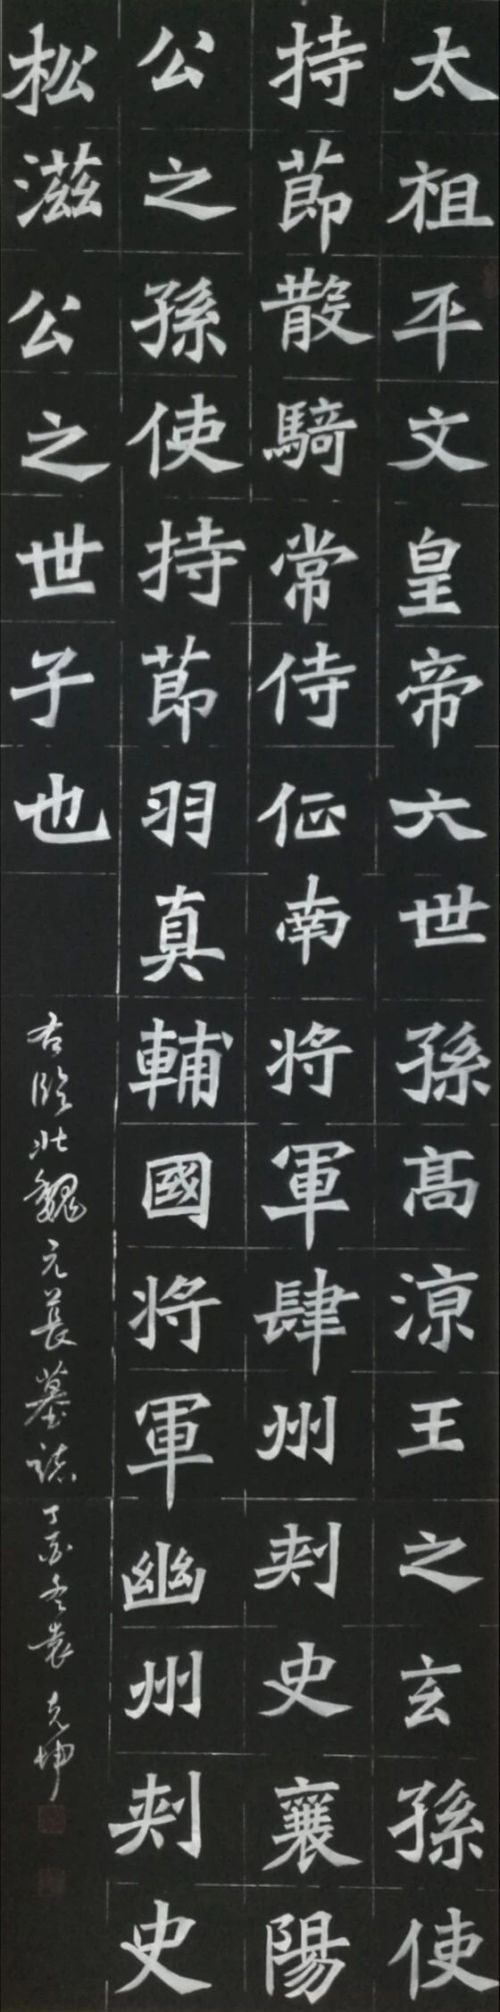 太祖平文皇帝六世孫髙涼王之玄孫使
持節散騎常侍征南將軍肆州刾史襄陽
公之孫使持節羽真輔國將軍幽州刾史
松滋公之世子也
右臨北魏元萇墓誌丁酉冬袁克坤